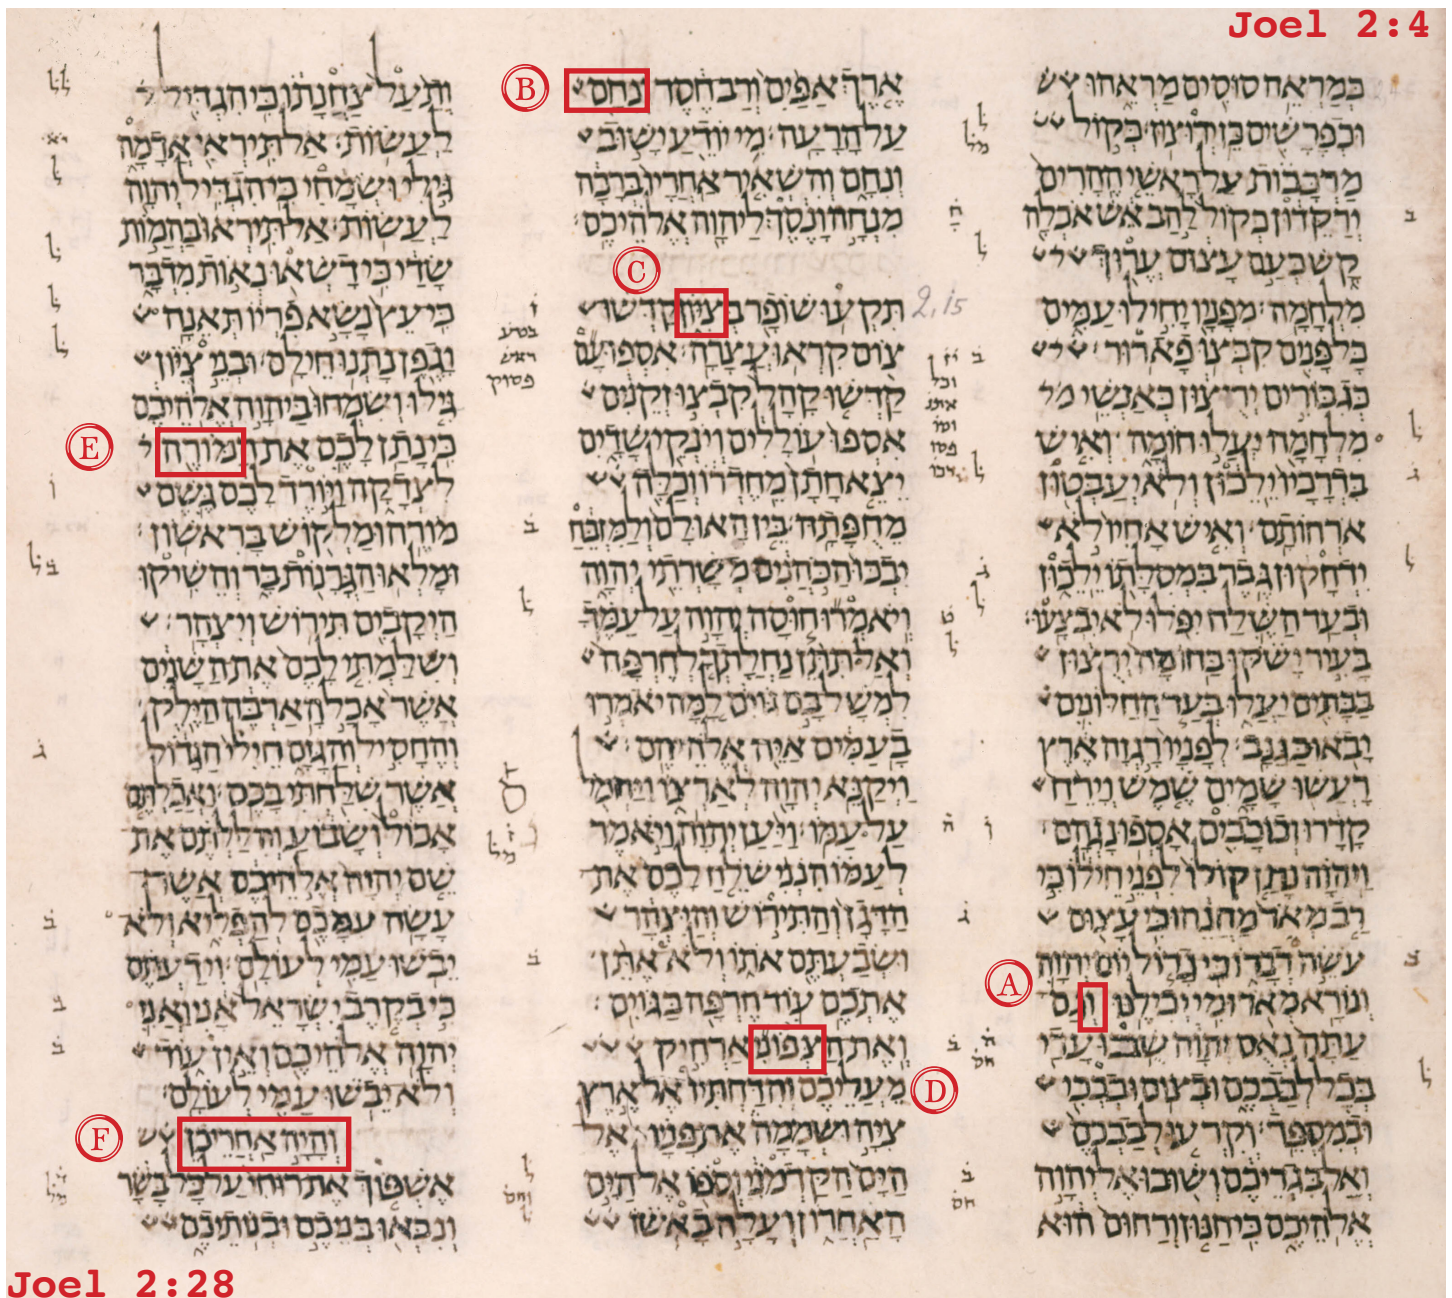 Joel 2:4
כמראה סוסים מראהו
וכפרשים כן ירוצון כקול
מרכבות על ראשי ההרים
ירקדון כקול להב אש אכלה
קש כעם עצום ערוך
מלחמה מפניו יחילו עמים
כל פנים קבצו פארור
כגבורים ירצון כאנשי
מלחמה יעלו חומה ואיש
בדרכיו ילכון ולא יעבטון
ארחותם ואיש אחיו לא
ידחקון גבר במסלתו ילכון
ובעד השלח יפלו לא יבצעו
בעיר ישקו בחומה ירצון
בבתים יעלו בעד החלונים
יבאו כגנב לפניו רגזה ארץ
רעשו שמים שמש וירח
קדרו וכוכבים אספו נגהם
ויהוה נתן קולו לפני חילו כי
רב מאד מחנהו כי עצום
עשה דברו כי גדול יום יהוה
A
ונורא מאד ומי יכילנו וגם
עתה נאם יהוה שבו עדי
בכל לבבכם ובצום ובבכי
ובמספד וקרעו לבבכם
ואל בגדיכם ושובו אל יהוה
אלהיכם כי חנון ורחום הוא
B
ארך אפים ורב חסד ונחם
על הרעה מי יודע ישוב
ונחם והשאיר אחריו ברכה
מנחה ונסך ליהוה אלהיכם
C
2,15
תקעו שופר בציון קדשו
צום קראו עצרה אספו עם
קדשו קהל קבצו זקנים
אספו עוללים וינקי שדים
יצא חתן מחדרו וכלה
מחפתה בין האולם ולמזבח
יבכו הכהנים משרתי יהוה
ויאמרו חוסה יהוה על עמך
ואל תתן נחלתך לחרפה
למשל בם גוים למה יאמרו
בעמים איה אלהיהם
ויקנא יהוה לארצו ויחמל
על עמו ויען יהוה ויאמר
לעמו הנני שלח לכם את
הדגן והתירוש והיצהר
ושבעתם אתו ולא אתן
אתכם עוד חרפה בגוים
ואת הצפוני ארחיק
D
מעליכם והדחתיו אל ארץ
ציה ושממה את פניו אל
הים הקדמני וספו אל הים
האחרון ועלה באשו
ותעל צחנתו כי הגדיל
לעשות אל תיראי אדמה
גילי ושמחי כי הגדיל יהוה
לעשות אל תיראו בהמות
שדי כי דשאו נאות מדבר
כי עץ נשא פריו תאנה
וגפן נתנו חילם ובני ציון
גילו ושמחו ביהוה אלהיכם
E
כי נתן לכם את המורה
לצדקה ויורד לכם גשם
מורה ומלקוש בראשון
ומלאו הגרנות בר והשיקו
היקבים תירוש ויצהר
ושלמתי לכם את השנים
אשר אכל הארבה הילק
והחסיל והגזם חילי הגדול
אשר שלחתי בכם ואכלתם
אכול ושבוע והללתם את
שם יהוה אלהיכם אשר
עשה עמכם להפליא ולא
יבשו עמי לעולם וידעתם
כי בקרב ישראל אני ואני
יהוה אלהיכם ואין עוד
ולא יבשו עמי לעולם
F
והיה אחרי כן
אשפוך את רוחי על כל בשר
ונבאו בניכם ובנתיכם
Joel 2:28